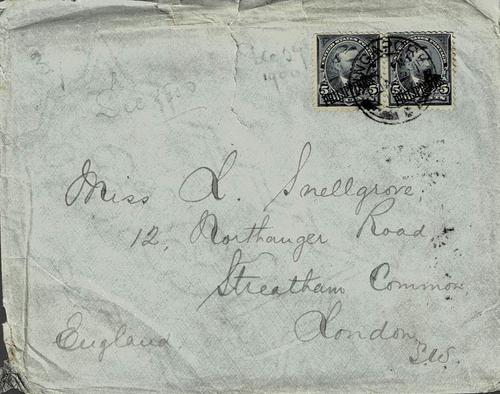 1900
5 5 5 5
Miss L. Snellgrove,
12, Northanger Road
Streatham Common
London
S.W.
England